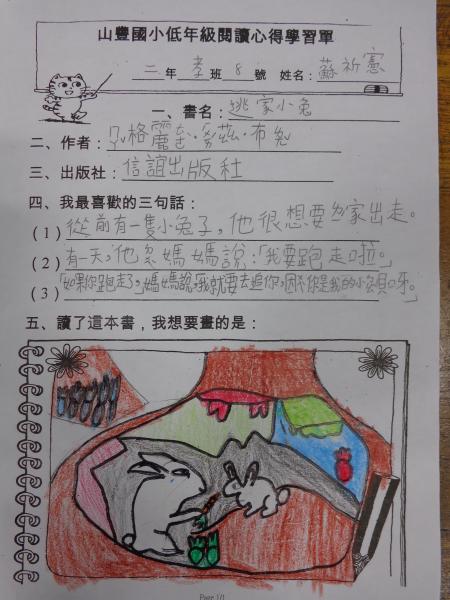 山豐國小低年級閱讀心得學習單
二年 孝班 8 號 姓名：蘇祈憲
一、書名：逃家小兔
二、作者：瑪格麗、勞茲．布
三、出版社：信誼出版社
四、我最喜歡的三句話：
(1) 從前有一隻小兔子，他很想要離家出走。
(2) 有一天，他對媽媽說：「我要跑走啦。」
(3)「如果你跑走了。」媽媽說，「我就要去追你，因為你是我的小寶貝呀。」
五、讀了這本書，我想要畫的是：
Page 1/1